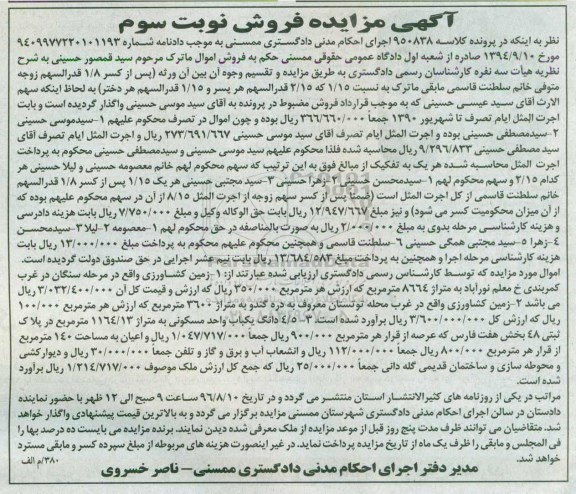 آگهی مزایده فروش نوبت سوم
نظر به اینکه در پرونده کلاسه ۹۵۰۸۳۸ اجرای احکام مدنی دادگستری ممسنی به موجب دادنامه شماره ۹۴۰۹۹۷۷۲۲۰۱۰۱۱۹۳
مورخ ۱۳۹۴/۹/۱۰ صادره از شعبه اول دادگاه عمومی حقوقی ممسنی حکم به فروش اموال ماترک مرحوم سید قمصور حسینی به شرح
نظریه هیأت سه نفره کارشناسان رسمی دادگستری به طریق مزایده و تقسیم وجوه آن بین آن ورثه (پس از کسر ۱/۸ قدرالسهم زوجه
متوفی خانم سلطنت قاسمی مابقی ماترک به نسبت ۱/۱۵ که ۲/۱۵ قدرالسهم هر پسر و ۱/۱۵ قدرالسهم هر دختر) به لحاظ اینکه سهم
الارث آقای سید عیسی حسینی که به موجب قرارداد فروش مضبوط در پرونده به آقای سید موسی حسینی واگذار گردیده است و بابت
اجرت المثل ایام تصرف تا شهریور ۱۳۹۰ جمعاً ۳۶۶/۶۶۰/۰۰۰ ریال بوده و چون اموال در تصرف محکوم علیهم ۱-سیدموسی حسینی
۲-سیدمصطفی حسینی بوده و اجرت المثل ایام تصرف آقای سید موسی حسینی ۲۷۳/۶۹۱/۶۶۷ ریال و اجرت المثل ایام تصرف آقای
سید مصطفی حسینی ۹/۲۹۶/۸۳۳ ریال محاسبه شده فلذا محکوم علیهم سید موسی حسینی و سیدمصطفی حسینی محکوم به پرداخت
اجرت المثل محاسبه شده هر یک به تفکیک از مبالغ فوق به این ترتیب که سهم محکوم لهم خانم معصومه حسینی و لیلا حسینی هر
کدام ۲/۱۵ و سهم محکوم لهم ۱-سیدمحسن حسینی ۲-زهرا حسینی ۳-سید مجتبی حسینی هر یک ۱/۱۵ پس از کسر ۱/۸ قدرالسهم
خانم سلطنت قاسمی از کل اجرت المثل است (ضمناً پس از کسر سهم زوجه از اجرت المثل ۸/۱۵ از آن در سهم محکوم علیهم بوده که
از آن میزان محکومیت کسر می شود) و نیز مبلغ ۱۲/۹۴۷/۶۶۷ ریال بابت حق الوکاله وکیل و مبلغ ۷/۷۵۰/۰۰۰ ریال بابت هزینه دادرسی
و هزینه کارشناسی مرحله بدوی به مبلغ ۲/۰۰۰/۰۰۰ ریال به صورت بالمناصفه در حق محکوم لهم ۱-معصومه ۲-لیلا ۳-سیدمحسن
۴-زهرا ۵-سید مجتبی همگی حسینی ۶-سلطنت قاسمی و همچنین محکوم علیهم محکوم به پرداخت مبلغ ۱۳/۰۰۰/۰۰۰ ریال بابت
هزینه کارشناسی مرحله اجرا و همچنین به پرداخت مبلغ ۱۳/۶۸۴/۵۸۳ ریال بابت نیم عشر اجرایی در حق صندوق دولت گردیده است.
اموال مورد مزایده که توسط کارشناس رسمی دادگستری ارزیابی شده عبارتند از: ۱-زمین کشاورزی واقع در مرحله سنگان در غرب
کمربندی خ معلم نورآباد به متراژ ۸۶۶۴ مترمربع که ارزش هر مترمربع ۳۵۰/۰۰۰ ریال که ارزش و قیمت کل آن ۳/۰۳۲/۴۰۰/۰۰۰ ریال
می باشد ۲-زمین کشاورزی واقع در غرب محله توتستان معروف به دره گندو به متراژ ۳۶۰۰۰ مترمربع که ارزش هر مترمربع ۱۰۰/۰۰۰
ریال که ارزش کل ۳/۶۰۰/۰۰۰/۰۰۰ ریال برآورد شده است. ۳-۴/۵ دانگ یکباب واحد مسکونی به متراژ ۱۱۶۴/۱۳ مترمربع در پلاک
ثبتی ۴۸ بخش هفت فارس که عرصه از قرار هر مترمربع ۹۰۰/۰۰۰ ریال جمعاً ۱/۰۴۷/۷۱۷/۰۰۰ ریال و اعیان به مساحت ۱۴۰ مترمربع
از قرار هر مترمربع ۸۰۰/۰۰۰ ریال جمعاً ۱۱۲/۰۰۰/۰۰۰ ریال و انشعاب آب و برق و گاز و تلفن جمعاً ۳۰/۰۰۰/۰۰۰ ریال و دیوارکشی
و محوطه سازی و ساختمان قدیمی گله دانی جمعاً ۲۵/۰۰۰/۰۰۰ ریال که جمع کل ارزش ملک موصوف ۱/۲۱۴/۷۱۷/۰۰۰ ریال برآورد
شده است.
مراتب در یکی از روزنامه های کثیرالانتشار استان منتشر می گردد و در تاریخ ۹۶/۸/۱۰ ساعت ۹ صبح الی ۱۲ ظهر با حضور نماینده
دادستان در سالن اجرای احکام مدنی دادگستری شهرستان ممسنی مزایده برگزار می گردد و به بالاترین قیمت پیشنهادی واگذار خواهد
شد. متقاضیان می توانند ظرف مدت پنج روز قبل از موعد مزایده از ملک معرفی شده دیدن نمایند. برنده مزایده می بایست ده درصد بها را
فی المجلس و مابقی را ظرف یک ماه از تاریخ مزایده پرداخت نماید. در غیر اینصورت هزینه های مربوطه از مبلغ سپرده کسر و مابقی مسترد
خواهد شد.
۳۸۰/م الف
مدیر دفتر اجرای احکام مدنی دادگستری ممسنی- ناصر خسروی